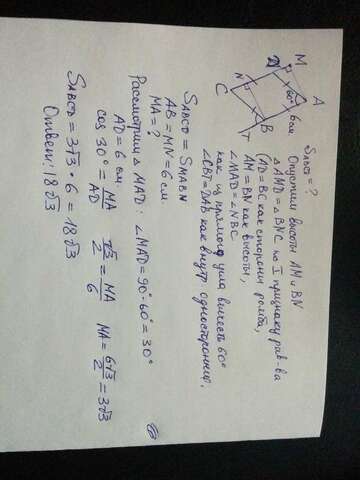 M
A
D
60°
6 см
N
C
B
T
SABCD = ?
Опустим высоты AM и BN
△ AMD = △ BNC по I признаку рав-ва
(AD = BC как стороны ромба,
AM = BN как высоты,
∠MAD = ∠NBC
как из прямого угла вычесть 60°
∠CBT = DAB как внутр односторонние.
SABCD = SMABN
AB = MN = 6 см
MA = ?
Рассмотрим △ MAD: ∠MAD = 90° - 60° = 30°
AD = 6 см
cos 30° = MA/AD √3/2 = MA/6 MA = 6√3/2 = 3√3
SABCD = 3√3 • 6 = 18√3
Ответ: 18√3